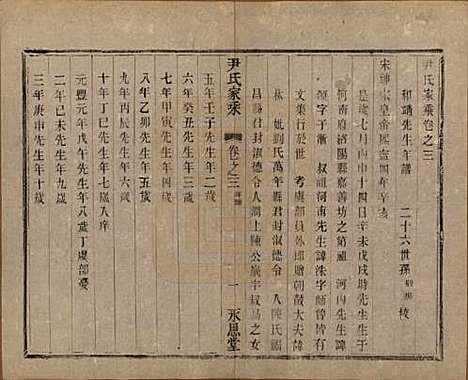 尹氏家乘卷之三
和靖先生年譜　二十六世孫　　梭
宋神宗皇帝熙寧四年辛亥
是歲七月丙申十四日辛未戌時先生生于
河南府洛陽縣嘉善坊之第祖　河內先生諱
源字子漸　叔祖河南先生諱洙字師魯皆有
文集行於世　考虞部員外郎贈朝散大夫諱
林　妣劉氏萬年縣君封淑德令人陳氏
昌縣君封淑德令人潤上陳公廙字叔易之女
尹氏家乘　卷之三　年譜　一　永思堂
五年壬子先生年二歲
六年癸丑先生年三歲
七年甲寅先生年四歲
八年乙卯先生年五歲
九年丙辰先生年六歲
十年丁巳先生年七歲入庠
元豐元年戊午先生年八歲丁虞部憂
二年己未先生年九歲
三年庚申先生年十歲